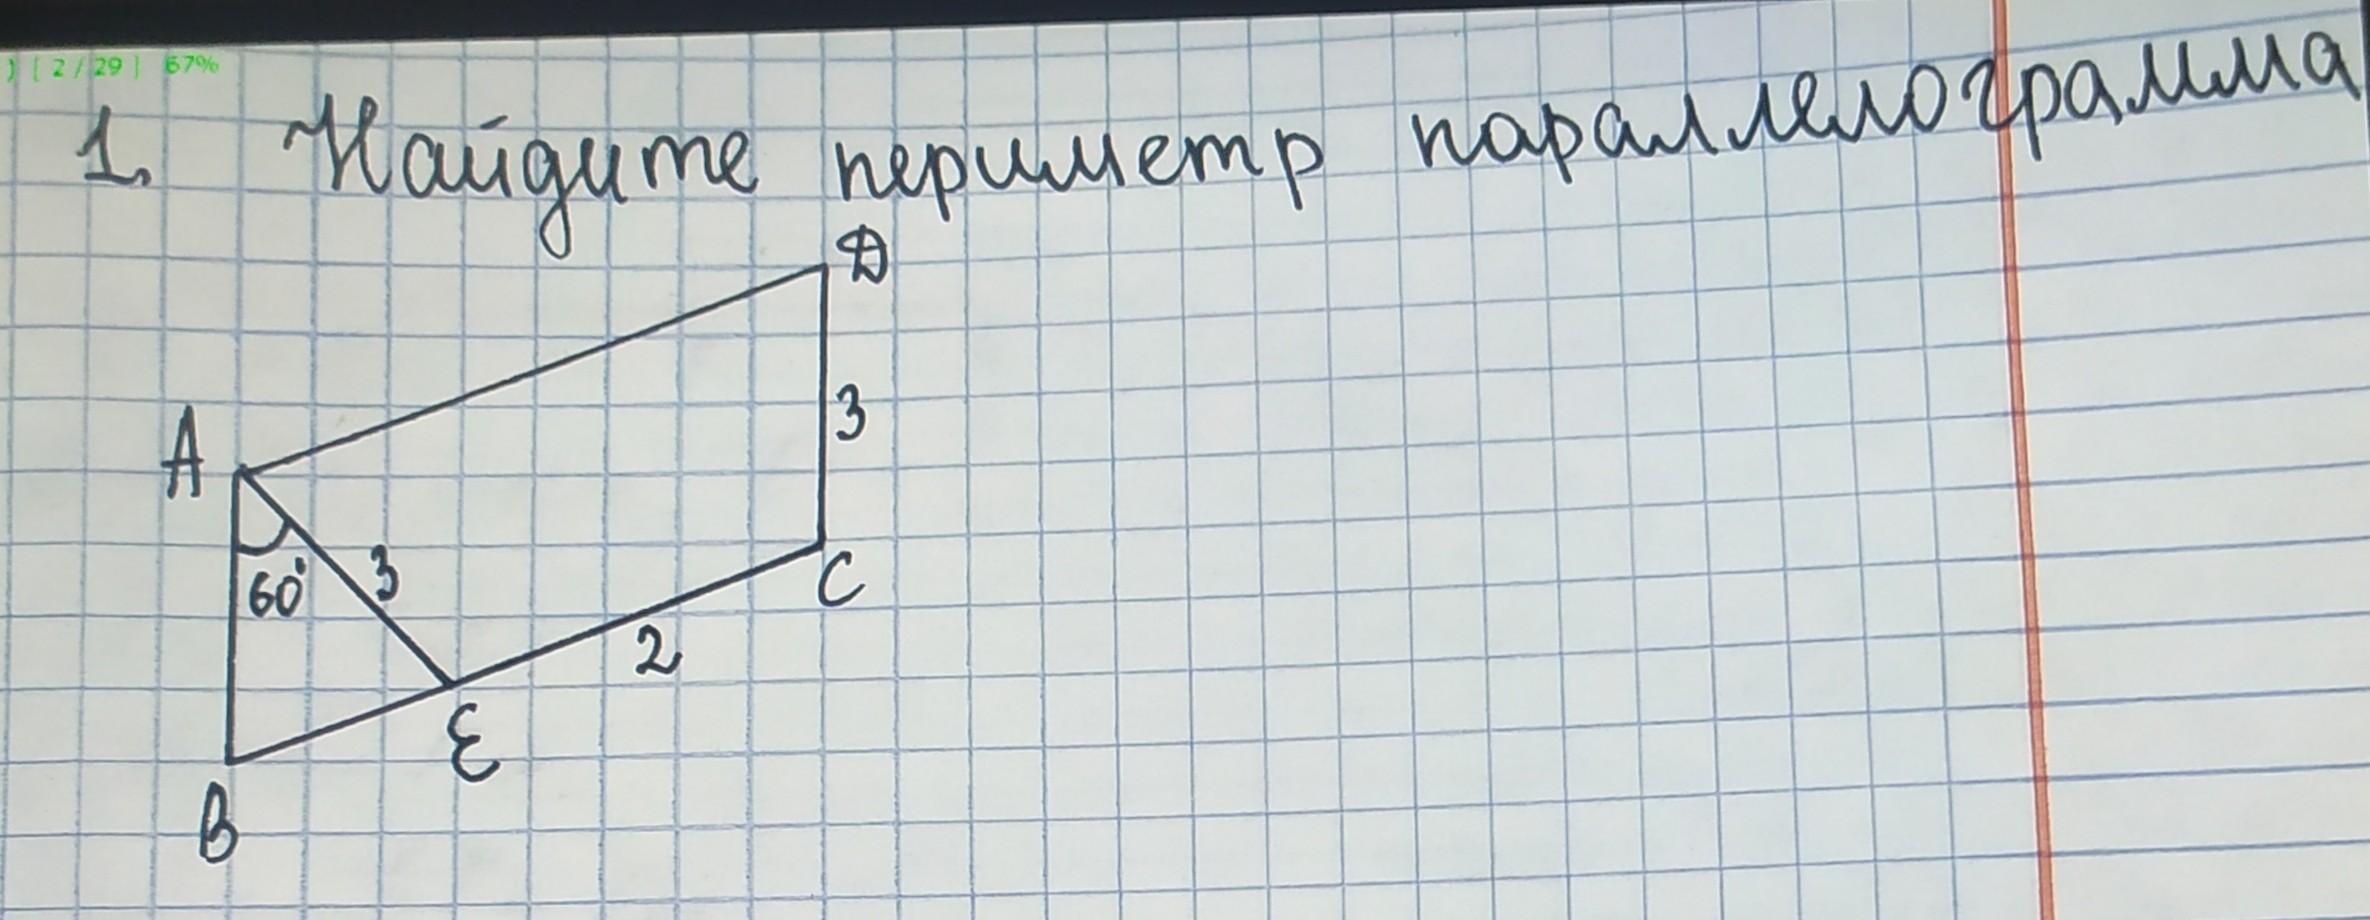 ) [ 2 / 29 ] 67%
1. Найдите периметр параллелограмма
D
A
3
60°
3
C
2
E
B